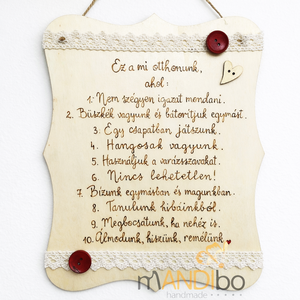 Ez a mi otthonunk,
ahol:
1. Nem szégyen igazat mondani.
2. Büszkék vagyunk és bátorítjuk egymást.
3. Egy csapatban játszunk.
4. Hangosak vagyunk.
5. Használjuk a varázsszavakat.
6. Nincs lehetetlen!
7. Bízunk egymásban és magunkban.
8. Tanulunk hibáinkból.
9. Megbocsátunk, ha nehéz is.
10. Álmodunk, hiszünk, remélünk.
mANDIbo
handmade